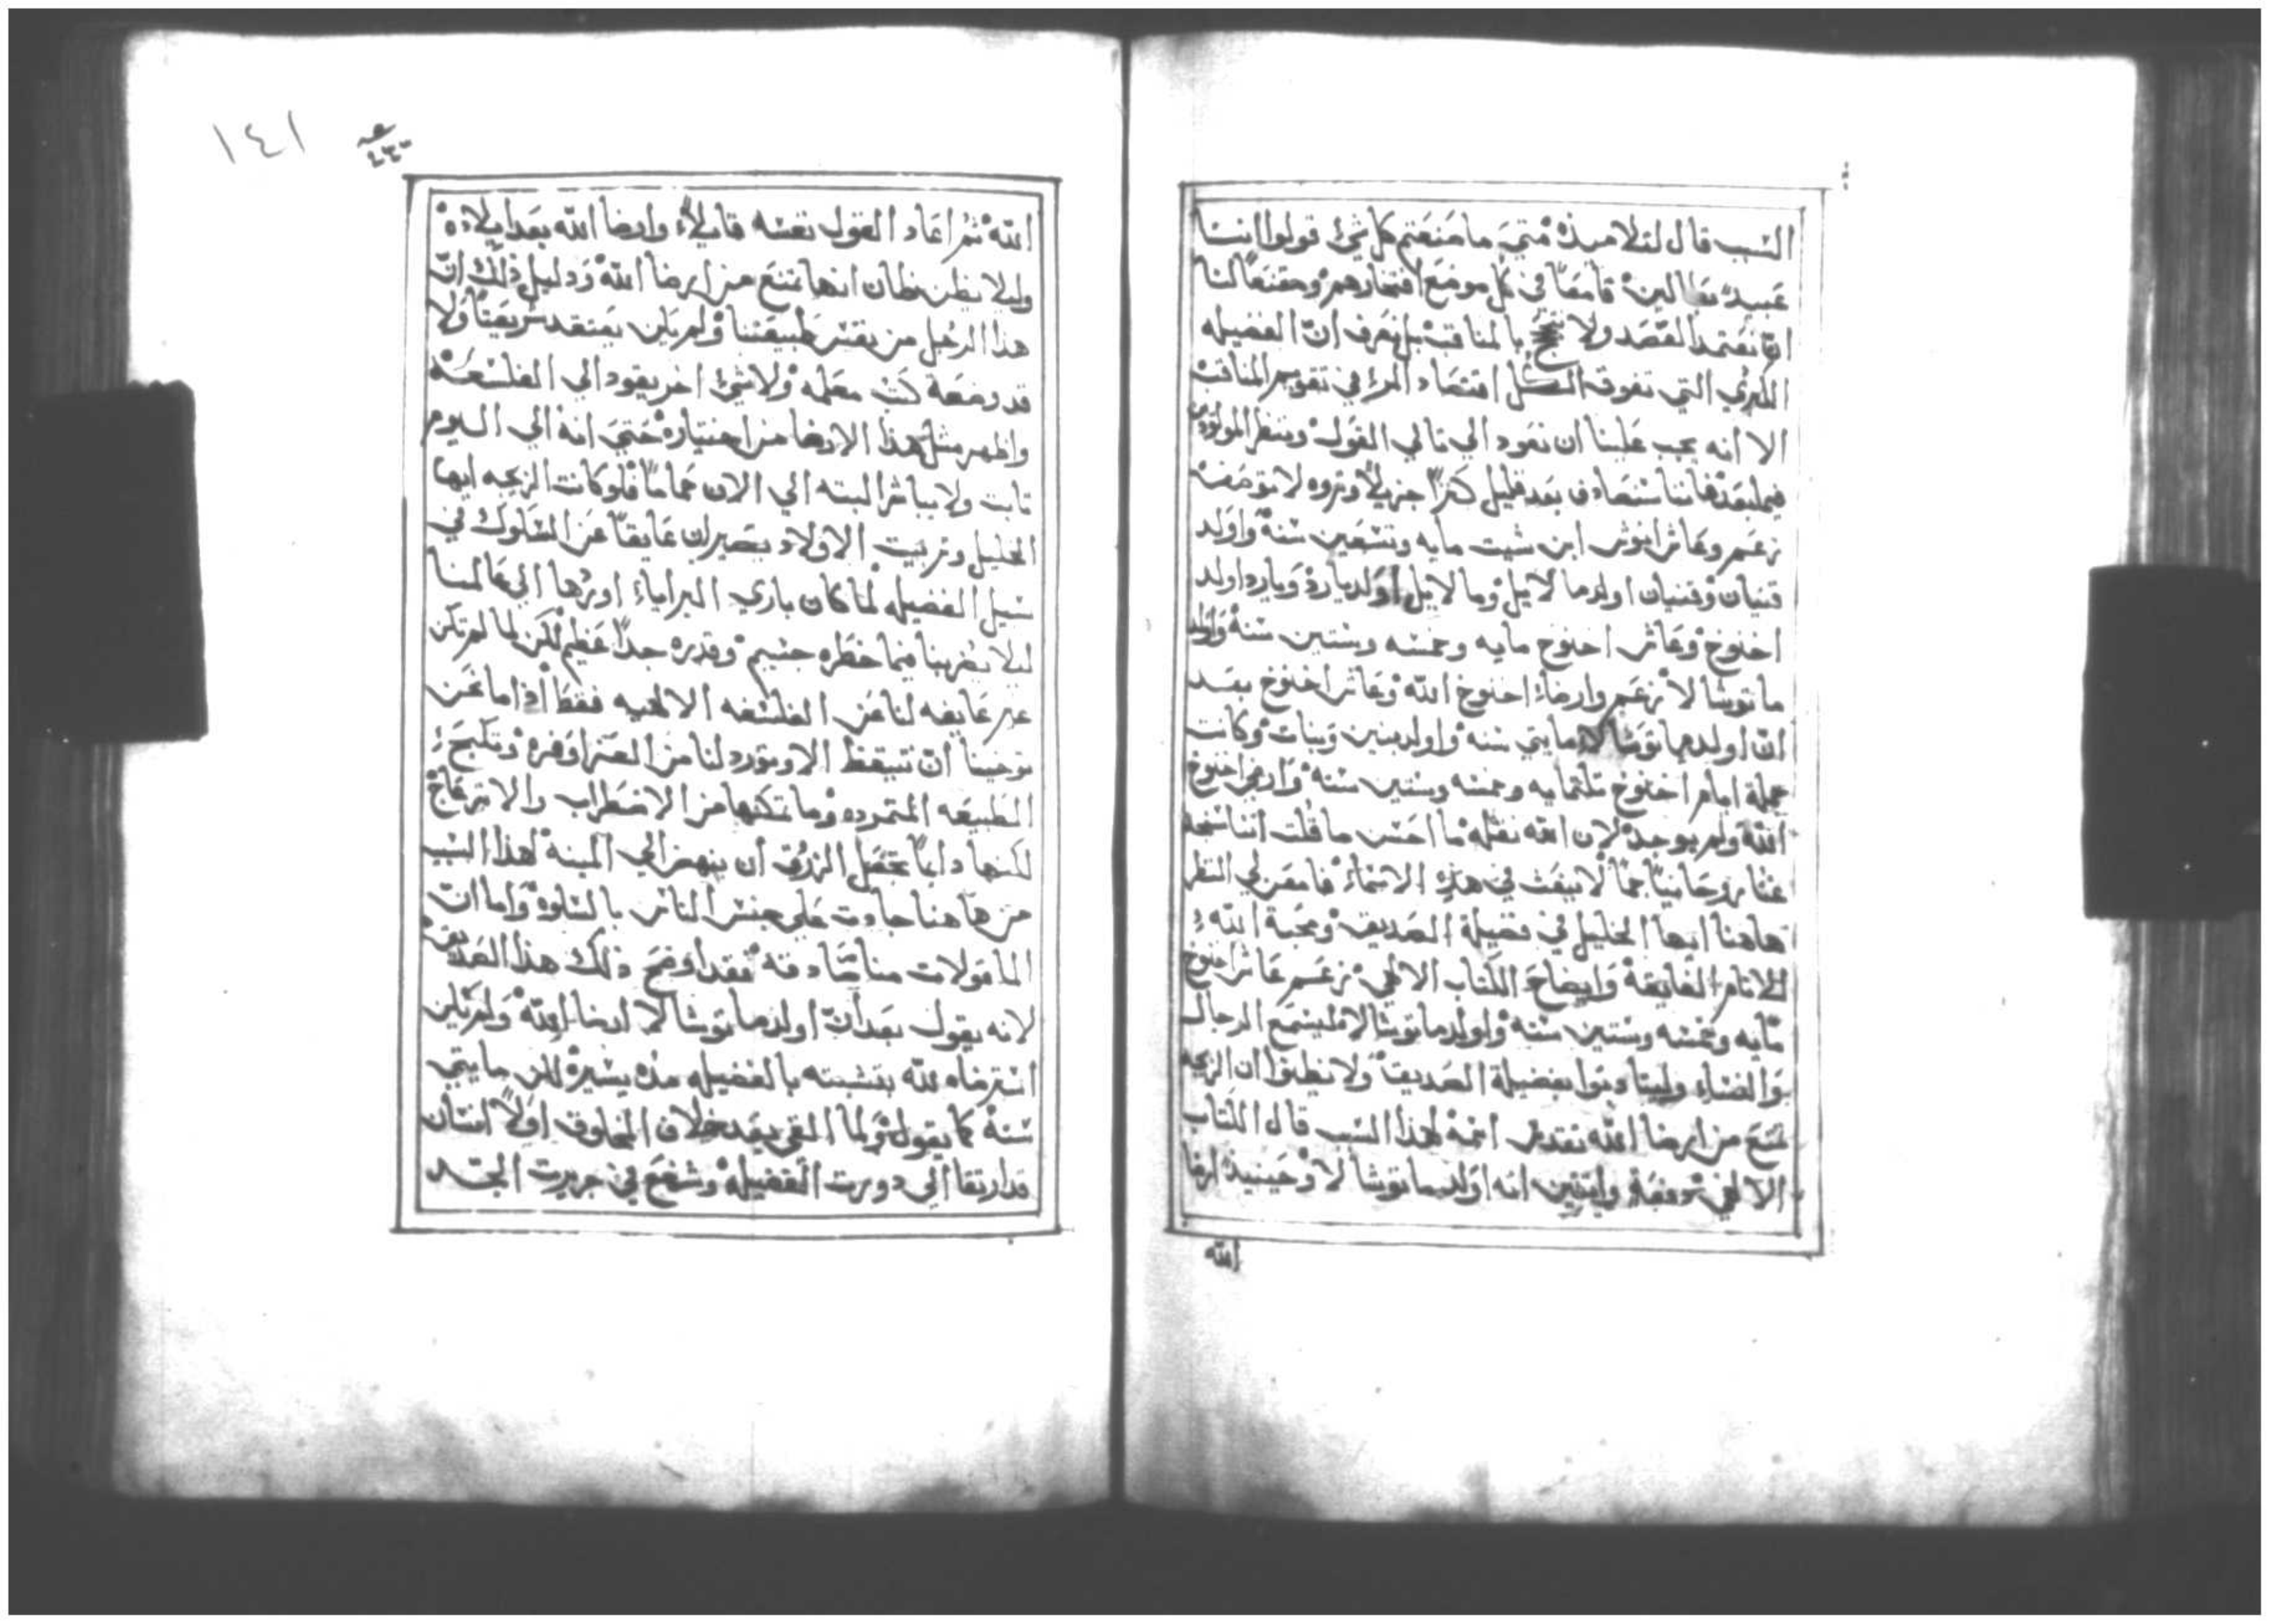 السبب قال لتلاميذه متي ما صنعتم كل شي قولوا اننا
عبيد بطالين قامعا في كل موضع افتخارهم ومقنعا لنا
ان نعتمد القصد ولا بالمناقب بل نعرف ان الفضيله
الكبري التي تفوق الكل اقتصاد المرء في تقويم المناقب
الا انه يجب علينا ان نعود الي تالي القول وننظر المولودين
فيما بعد فاننا سنصادف بعد قليل كنزا جزيلا وثروه لا توصف
زعم وعاش انوش ابن شيت مايه وتسعين سنه واولد
قنيان وقنيان اولد مالالايل ومالالايل اولد يارد ويارد اولد
اخنوخ وعاش اخنوخ مايه وخمسه وستين سنه واولد
ماتوشالا زعم وارضاء اخنوخ الله وعاش اخنوخ بعد
ان اولد ماتوشالا مايتي سنه واولد بنين وبنات وكانت
جملة ايام اخنوخ تلتمايه وخمسه وستين سنه وارضي اخنوخ
الله ولم يوجد لان الله نقله ما احسن ما قلت اننا سنجد
غنا روحانيا جما لا ينعت في هذه الاسماء فامعن لي النظر
هاهنا ايها الخليل في فضيلة الصديق ومحبة الله
للانام الفايقة وايضاح الكتاب الالهي زعم عاش اخنوخ
مايه وخمسه وستين سنه واولد ماتوشالا فليسمع الرجال
والنساء وليتادبوا بفضيلة الصديق ولا يظنوا ان الزيجه
تمنع من ارضا الله لهذا السبب قال الكتاب
الالهي دفعة واثنتين انه اولد ماتوشالا وحينيذ ارضا
الله
١٤١
الله ثم اعاد القول نفسه قايلا وارضا الله بعد ايلاده
وليلا يظن ظان انها تمنع من ارضا الله ودليل ذلك ان
هذا الرجل من نفس طبيعتنا ولم يكن يعتقد شريعتا ولا
قد وضعة كتب معلمه ولا شي اخر يقود الي الفلسفة
واظهر مثل هذا الارضا من اختياره حتي انه الي اليوم
ثابت ولا يباشر البته الي الان حماما فلو كانت الزيجه ايها
الخليل وتربيت الاولاد يصيران عايقا عن السلوك في
سبيل الفضيله لما كان باري البرايا اورثها الي عالمنا
ليلا يضر بنا فيما خطره جسيم وقدره جدا عظيم لكن لما لم تكن
غير عايقه لنا عن الفلسفه الالهيه فقط اذا ما نحن
توخينا ان نتيقظ الا وتورد لنا من العزا اوفره وتكبح
الطبيعه المتمرده وما تمكنها من الاضطراب والانزعاج
لكنها دايما تجعل الزورق ان ينهض الي المينه لهذا السبب
من هاهنا جادت علي جنس الناس بالسلوه واما ان
الماقولات مناصادقه فقد اوضح ذلك هذا الصديق
لانه يقول بعد ان اولد ماتوشالا ارضا الله ولم يكن
استرضاه لله بتشبته بالفضيله مده يسيره لكن مايتي
سنه كما يقول ولما القي بعد خلاف المخلوق اولا انسان
قد ارتقا الي دورت الفضيله وشفع في جريرت الجد